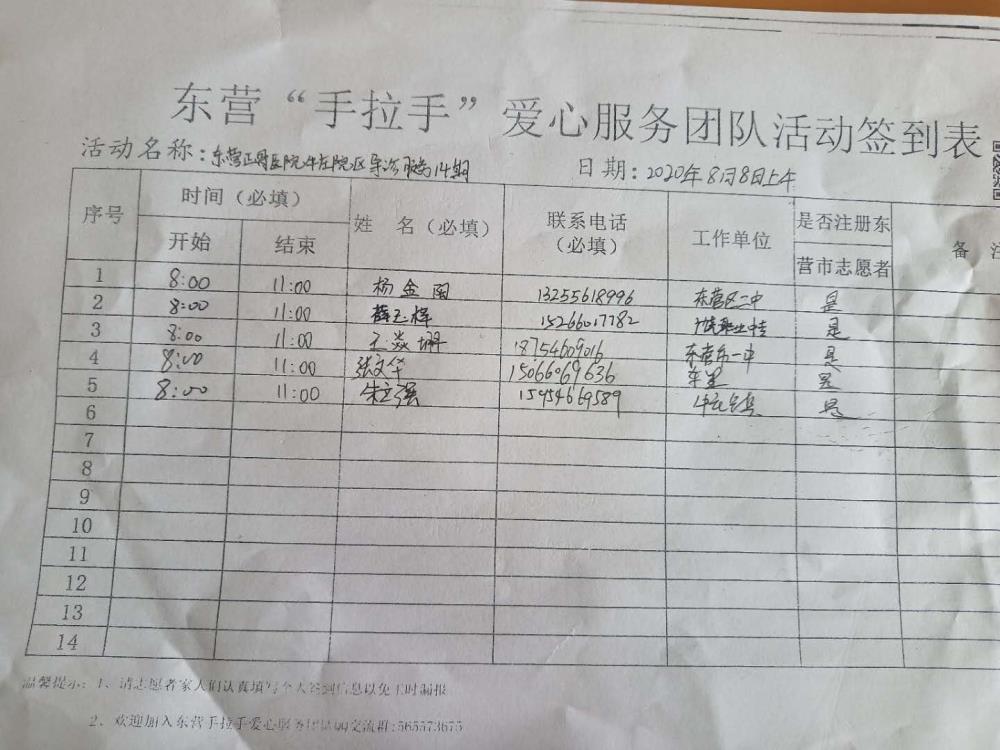 东营“手拉手”爱心服务团队活动签到表
活动名称：东营正骨医院牛庄院区导诊服务14期 日期：2020年8月8日上午
序号 时间（必填） 姓 名（必填） 联系电话（必填） 工作单位 是否注册东营市志愿者 备 注
开始 结束
1 8:00 11:00 杨金国 13255618996 东营区二中 是
2 8:00 11:00 薛玉梅 15266017782 是
3 8:00 11:00 王焱珊 18754609016 东营市一中 是
4 8:00 11:00 张文华 15066069636 是
5 8:00 11:00 朱立强 15954669589 是
6
7
8
9
10
11
12
13
14
温馨提示：1、请志愿者家人们认真填写个人签到信息以免工时漏报
2、欢迎加入东营手拉手爱心服务团队交流群:565573675